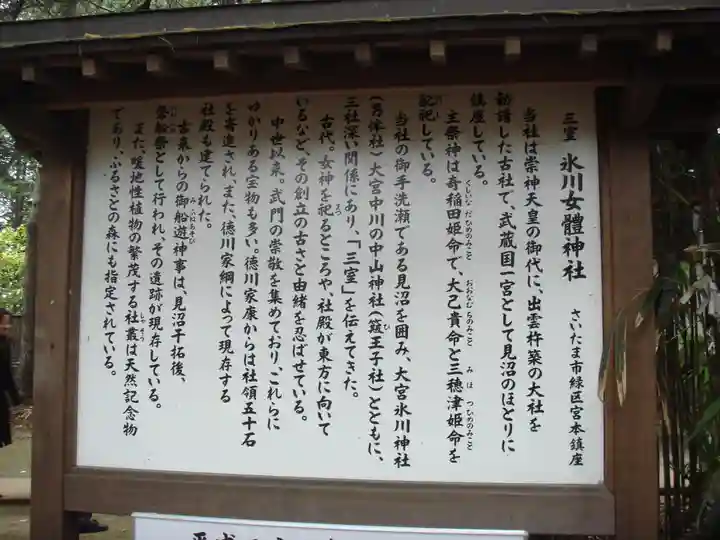 三室 氷川女體神社 さいたま市緑区宮本鎮座
当社は崇神天皇の御代に、出雲杵築の大社を
勧請した古社で、武蔵国一宮として見沼のほとりに
鎮座している。
主祭神は奇稲田姫命で、大己貴命と三穂津姫命を
くしいなだひめのみこと おおなむちのみこと みほつひめのみこと
配祀している。
当社の御手洗瀬である見沼を囲み、大宮氷川神社
(男体社)大宮中川の中山神社(簸王子社)とともに、
ひ
三社深い関係にあり、「三室」を伝えてきた。
古代。女神を祀るところや、社殿が東方に向いて
まつ
いるなど、その創立の古さと由緒を忍ばせている。
中世以来。武門の崇敬を集めており、これらに
ゆかりある宝物も多い。徳川家康からは社領五十石
を寄進され、また、徳川家綱によって現存する
社殿も建てられた。
古来からの御船遊神事は、見沼干拓後、
みふねあそび
祭として行われ、その遺跡が現存している。
また、暖地性植物の繁茂する社叢は天然記念物
しゃそう
であり、ふるさとの森にも指定されている。
平成